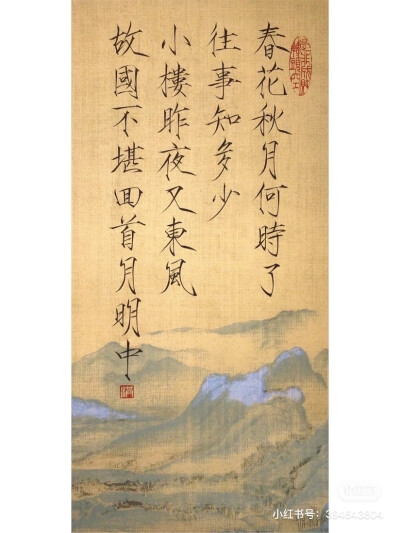 春花秋月何時了
往事知多少
小樓昨夜又東風
故國不堪回首月明中
小红书
小红书号：